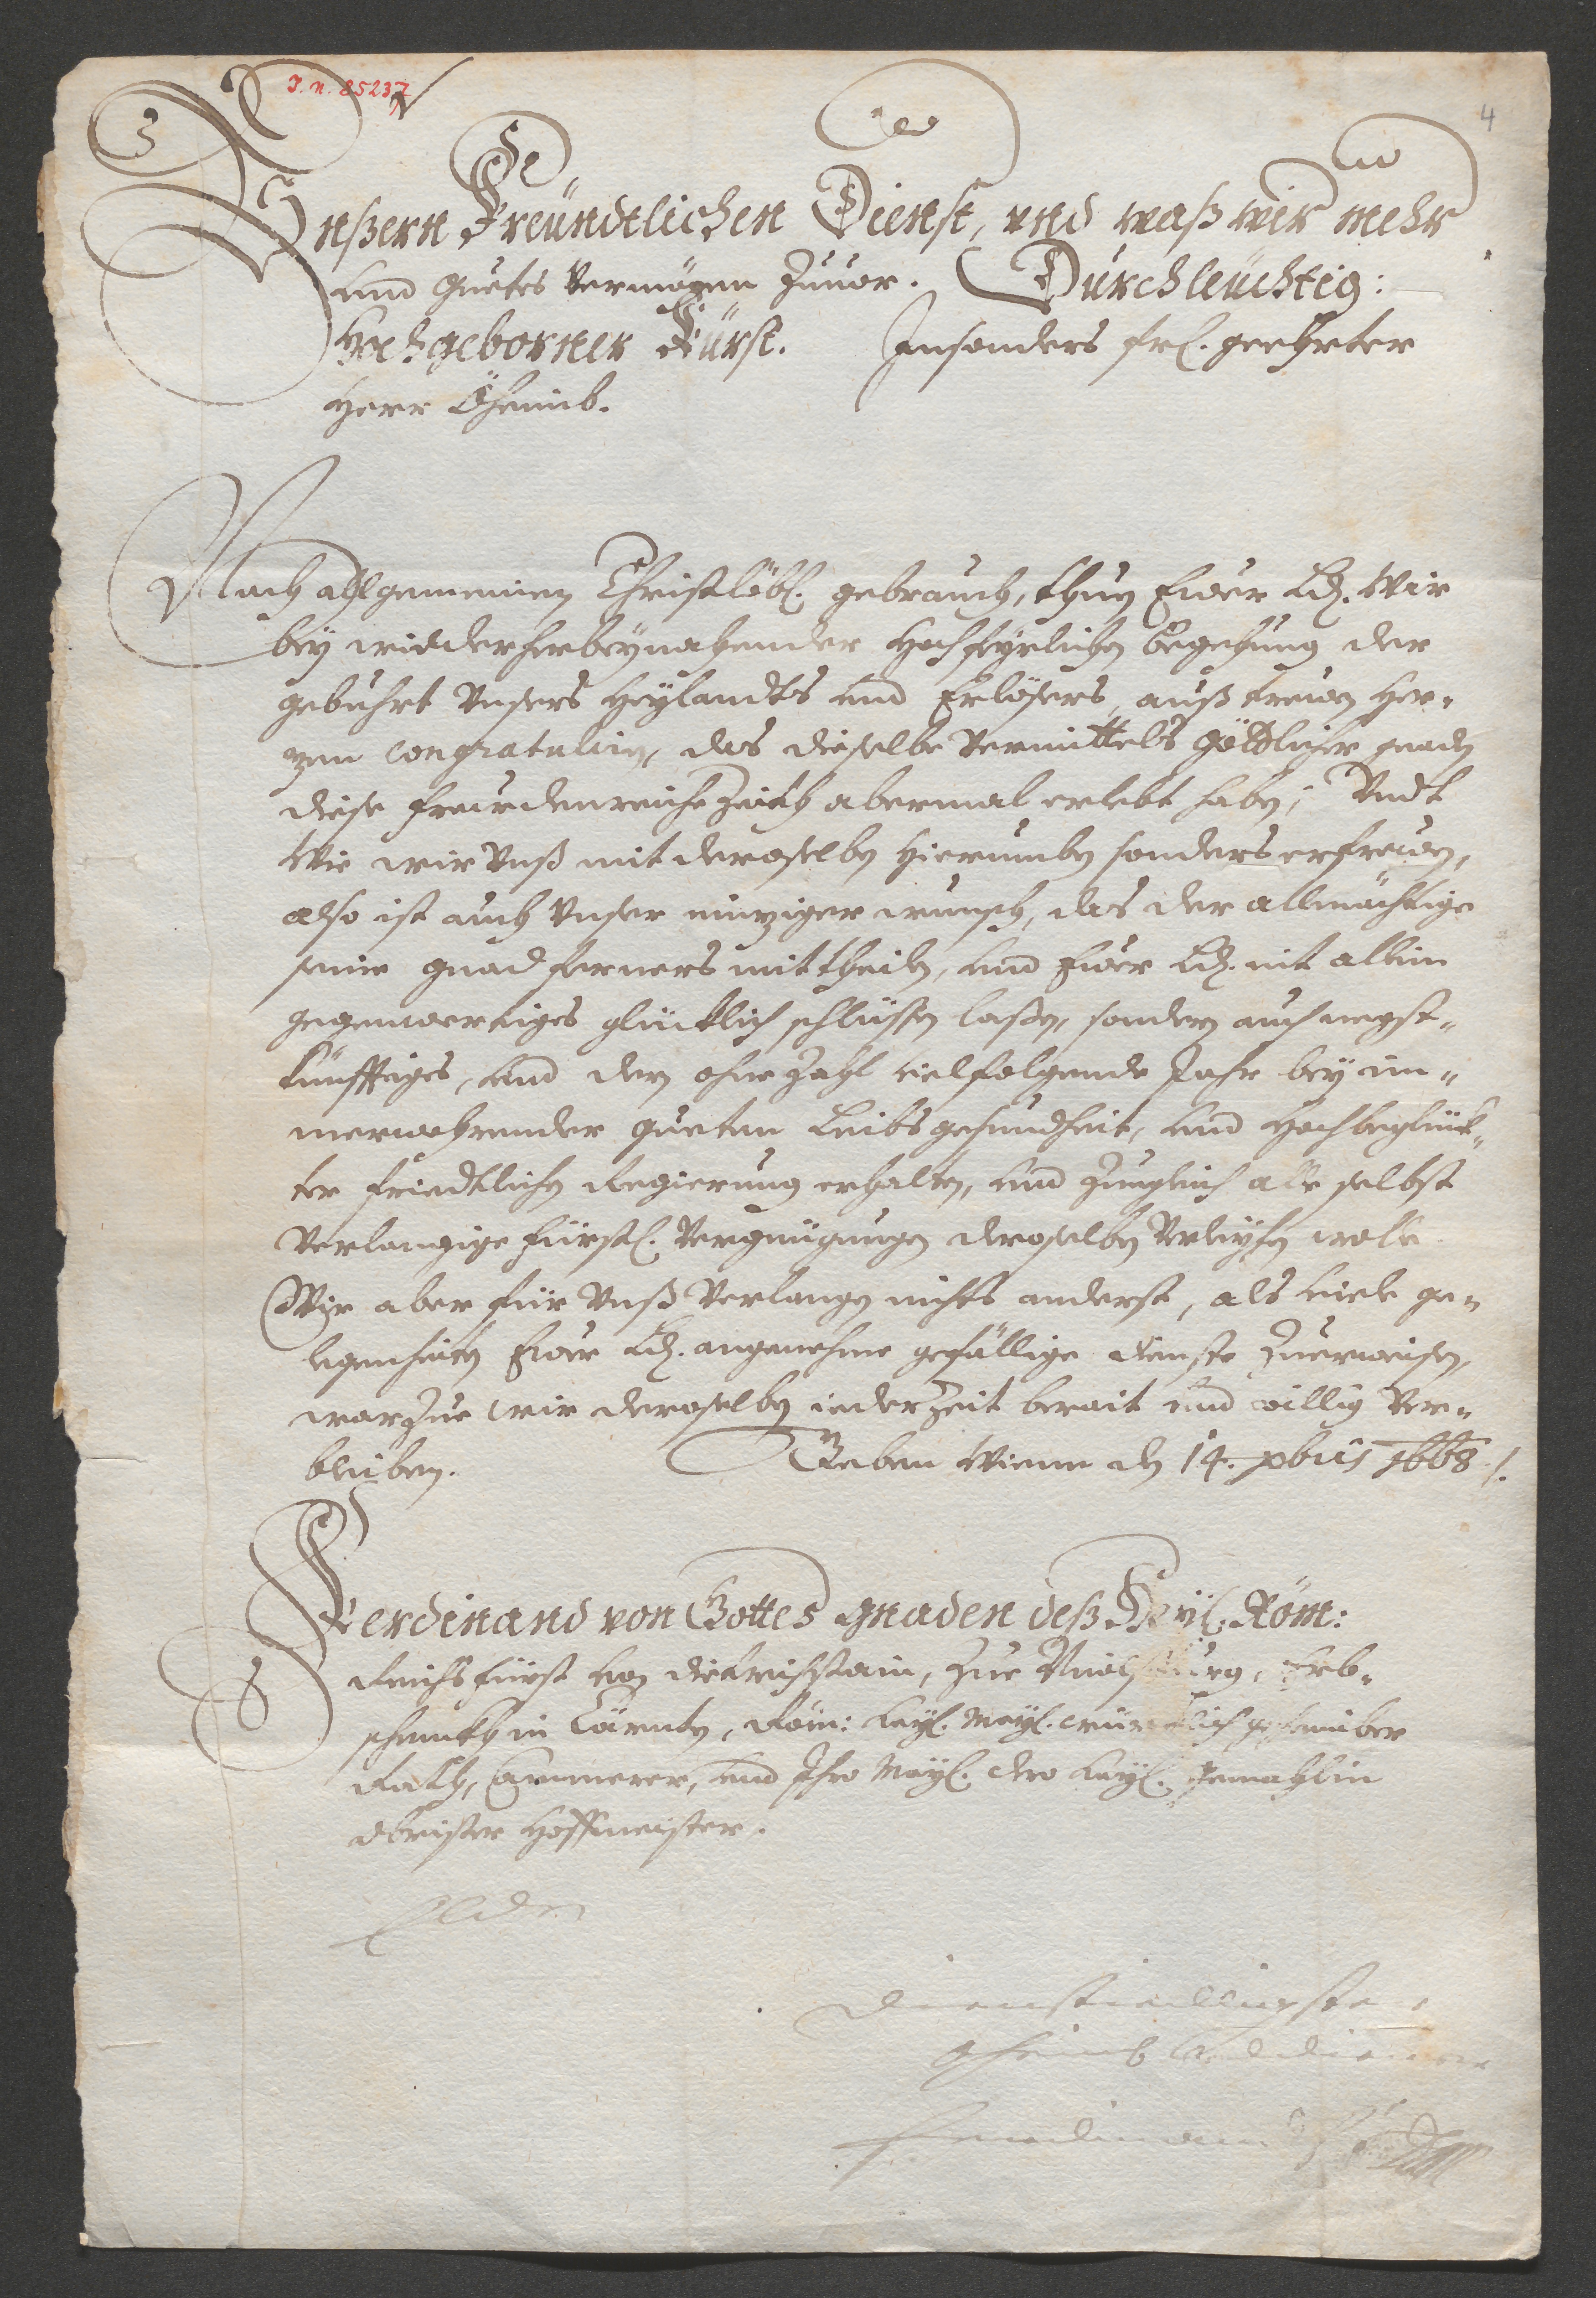 J. N. 85237
4
Vnßern Freündtlichen Dienst, vnd waß wir mehr
vnd guetes vermögen Zuuor. Durchleüchtig:
Hochgeborner Fürst. Jnsonders frl. geehrter
Herr Öhaimb.
Nach allgemeinen Christlöbl. gebrauch, thun Ewer Ld. Wir
bey widerherbeynahender Hochfeyrlichen begehung der
gebuhrt Vnsers Heylandts und Erlösers, auß trewen Her-
zen congratulirn, das dieselbe Vermittels Göttlicher gnaden
diese frewdenreiche Zeith abermal erlebt haben; Vndt
Wie wir Vnß mit deroselben hierumben sonders erfrewen,
also ist auch Vnser einziger wunsch, das der allmächtige
seine gnad ferners mittheilen, und Ewer Ld. nit allein
gegenwertiges glücklich schlüssen laßen, sondern auch negst-
künfftiges, und den ohne Zahl vielfolgende Jahr bey im-
merwehrender gueten Leibsgesundheit, und Hochbeglück-
ter friedtlichen Regierung erhalten, und zuegleich alle selbst
Verlangige fürstl. Vergnügungen deroselben Verleyhen wolle
Wir aber für Vnß Verlangen nichts anderst, als viele ge-
legenheiten Ewer Ld. angenehme gefällige dienste Zuerweisen,
warzue wir deroselben iederzeit berait und willig Ver-
bleiben. Geben Wienn den 14. xbris 1668.
Ferdinand von Gottes gnaden deß Heyl. Röm:
Reichs fürst von Dietrichstain, Zue Nicolspurg, Erb-
schenckh in Cärnten, Röm: Kayl. Mayl. würcklich gehaimber
Rath, Cammerer, und Ihro Mayl. dero Kayl. Gemahlin
Obrister Hoffmeister.
E Ld
dienstwilligster
Oheimb und diener
Ferdinand F v D